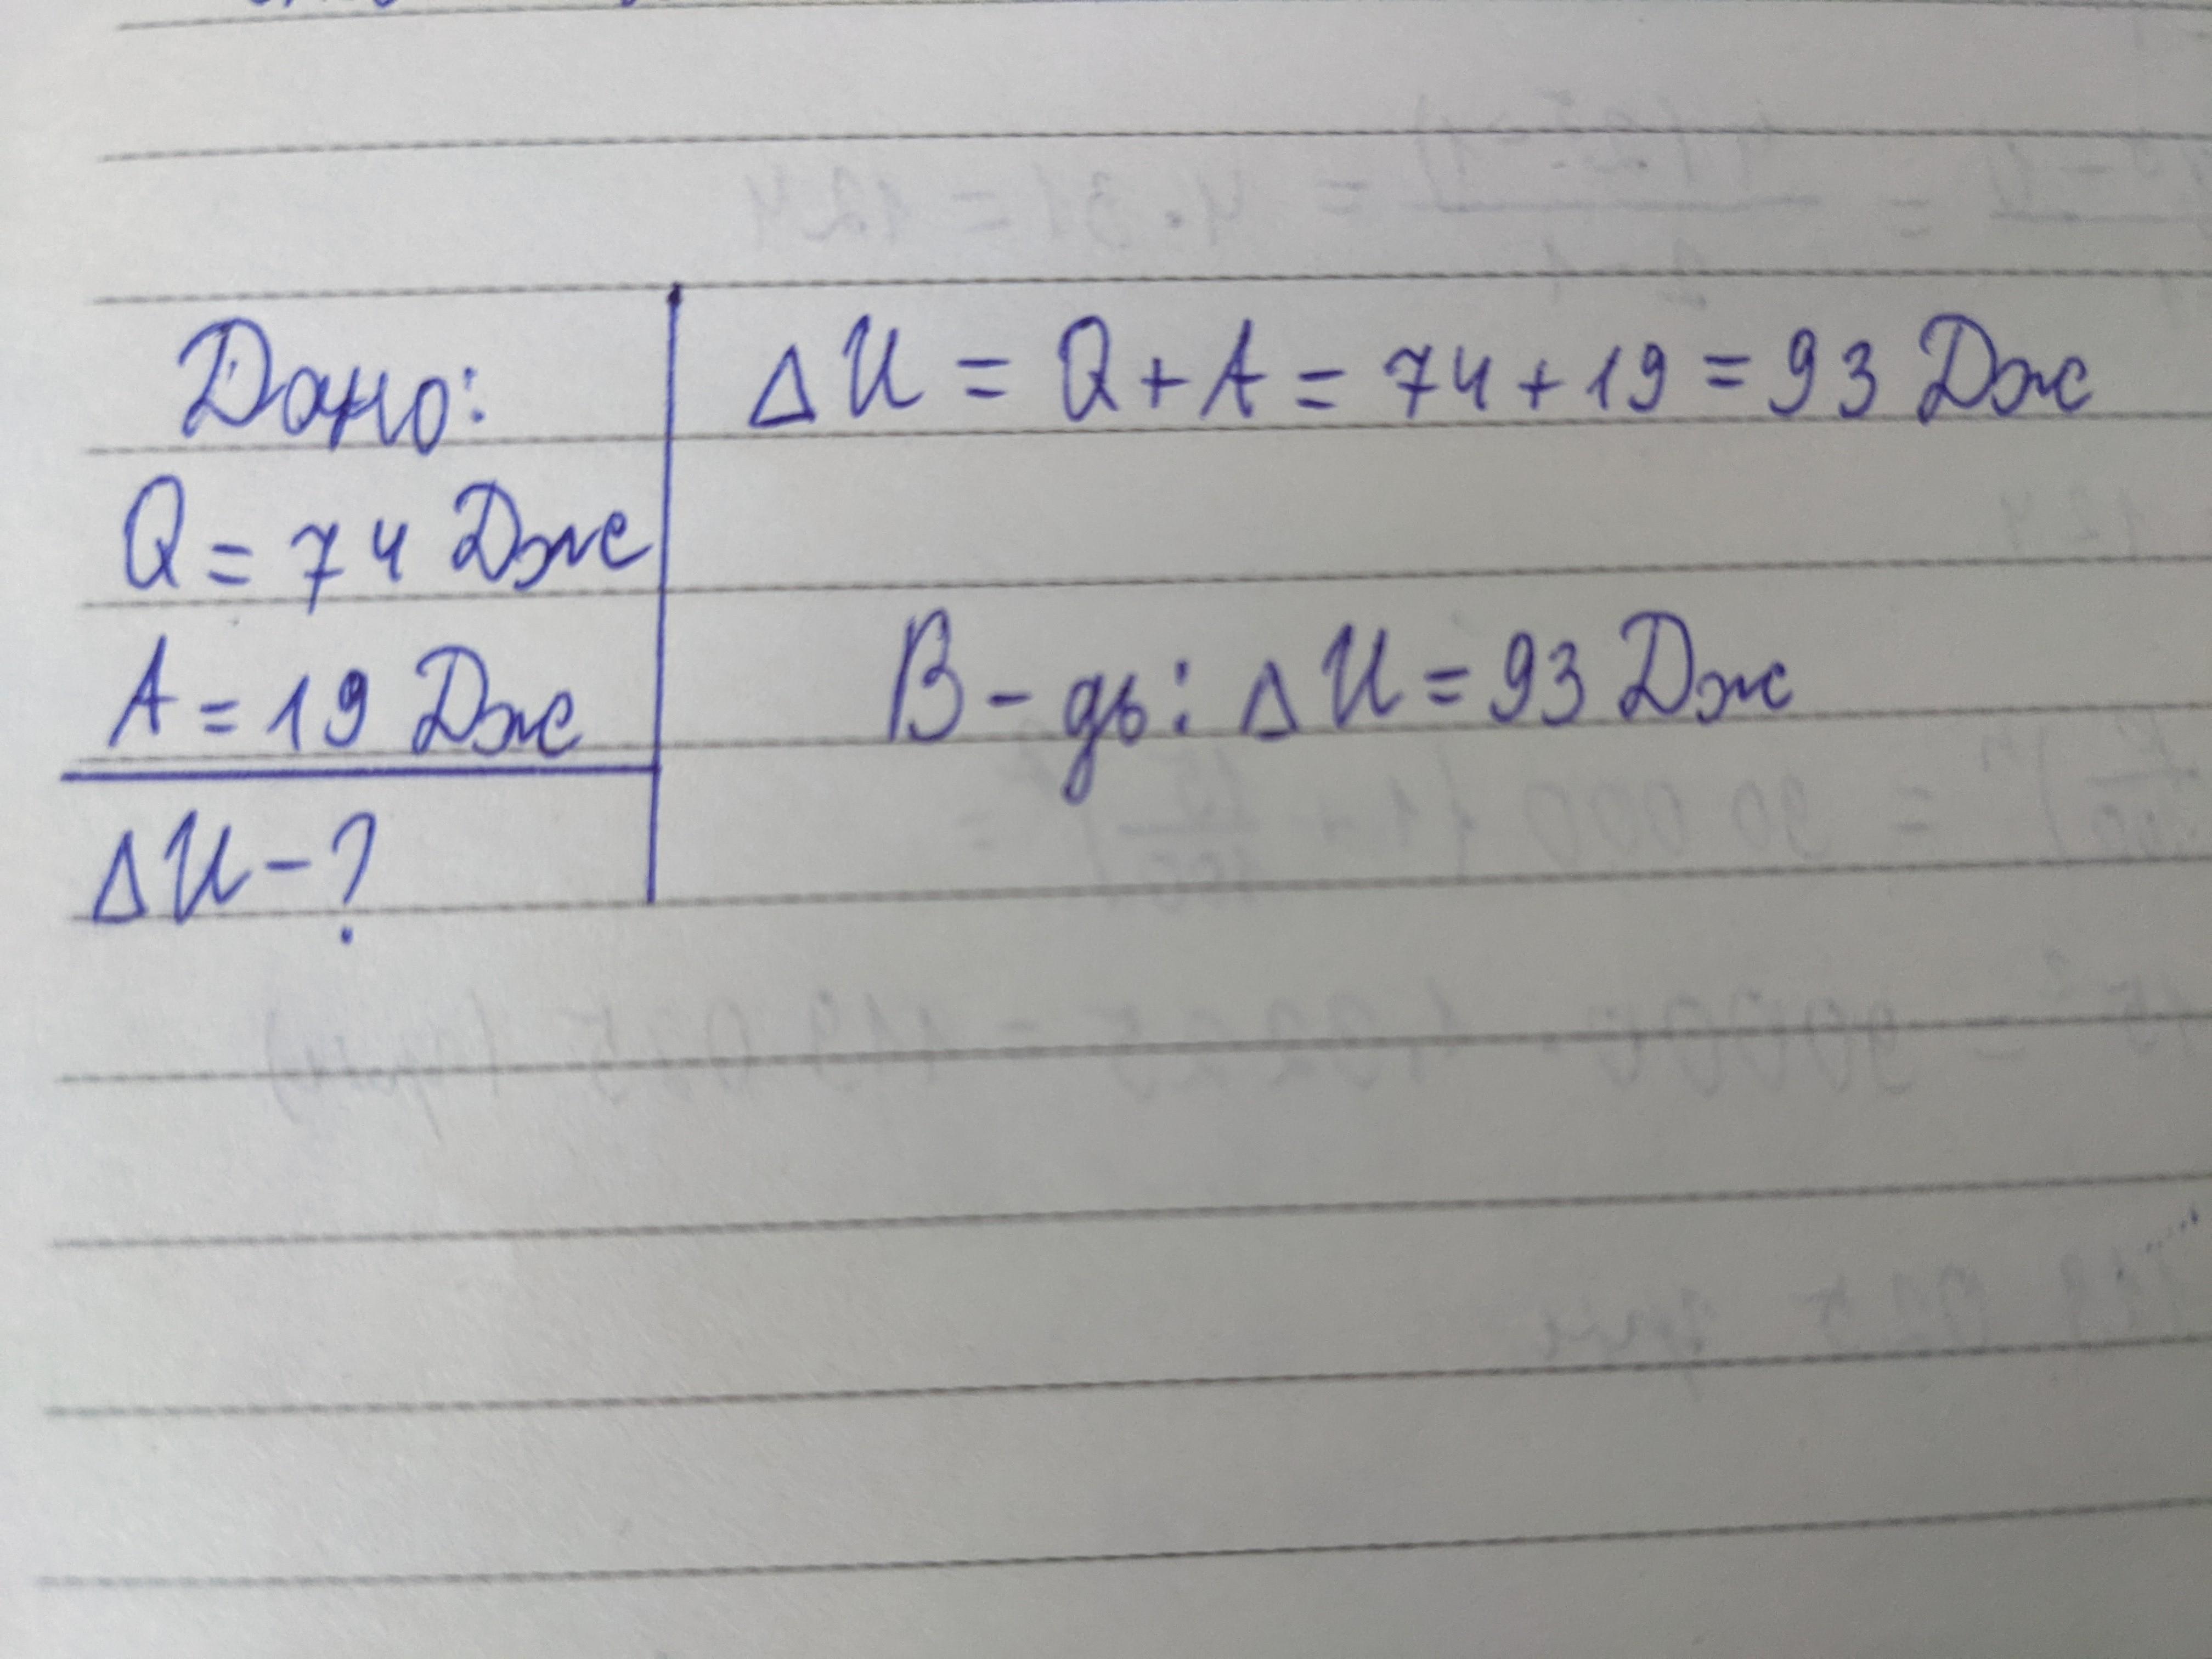 Дано:
Q = 74 Дж
A = 19 Дж
ΔU - ?
ΔU = Q + A = 74 + 19 = 93 Дж
В-дь: ΔU = 93 Дж